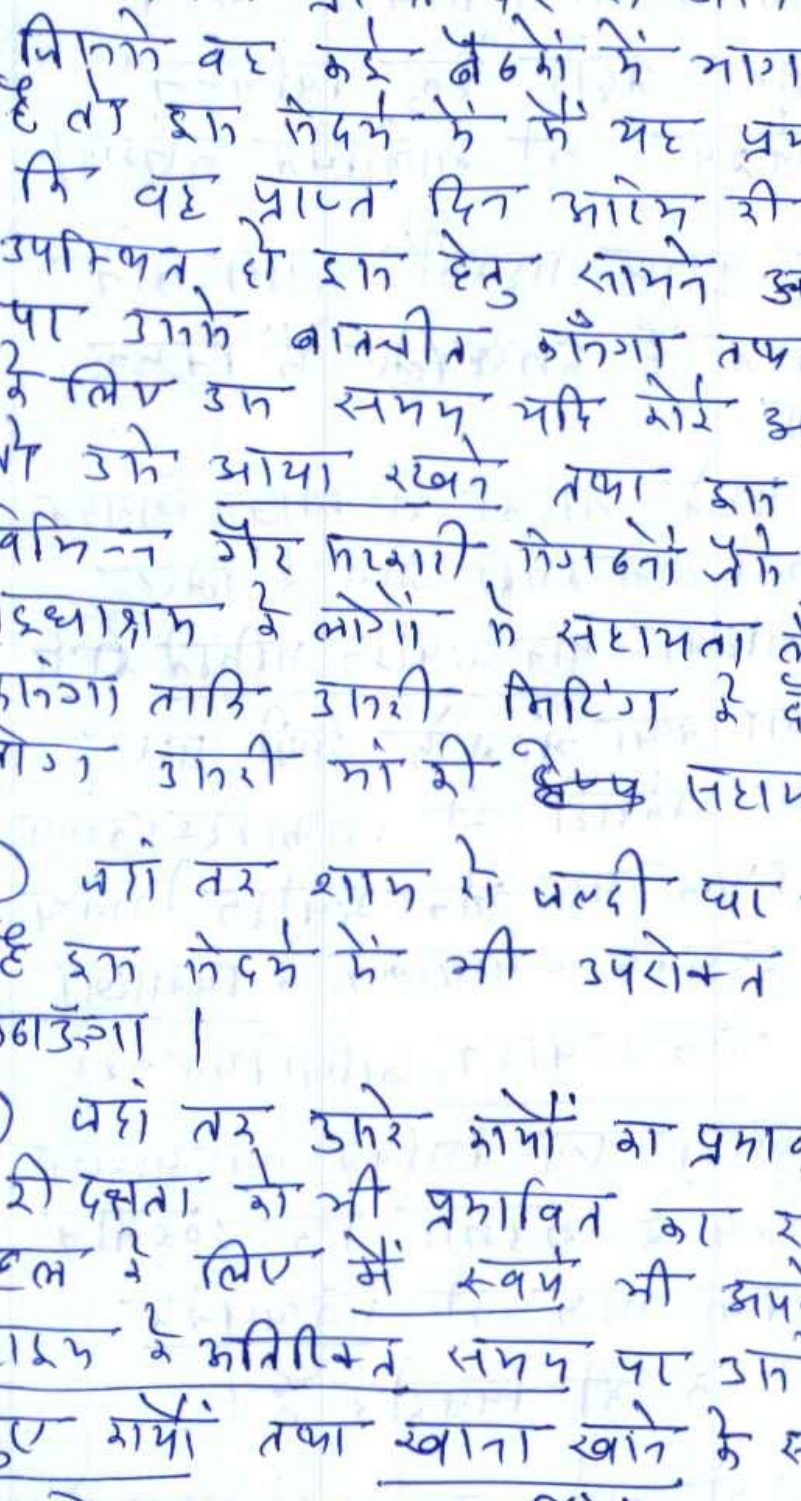 जिससे वह कई बैठकों में भाग
है तो इस संदर्भ में मैं यह प्रय
कि वह प्राप्त दिन आरंभ की
उपस्थित हो इस हेतु सामने
पर उनसे बातचीत करूँगा तथा
के लिए उस समय यदि कोई
तो उसे आया रखने तथा इस
विभिन्न गैर सरकारी संगठनों जैसे
वृद्धाश्रम के लोगों से सहायता
ताकि उसकी मिटिंग के
लोग उसकी मां की सहाय
) जहां तक शाम को जल्दी घर
है इस संदर्भ में भी उपरोक्त
उठाऊँगा ।
) जहां तक उसके कार्यों का प्रभाव
की दक्षता को भी प्रभावित कर र
हल के लिए मैं स्वयं भी अपने
टाइम के अतिरिक्त समय पर उस
हुए कार्यों तथा खाना खाने के स